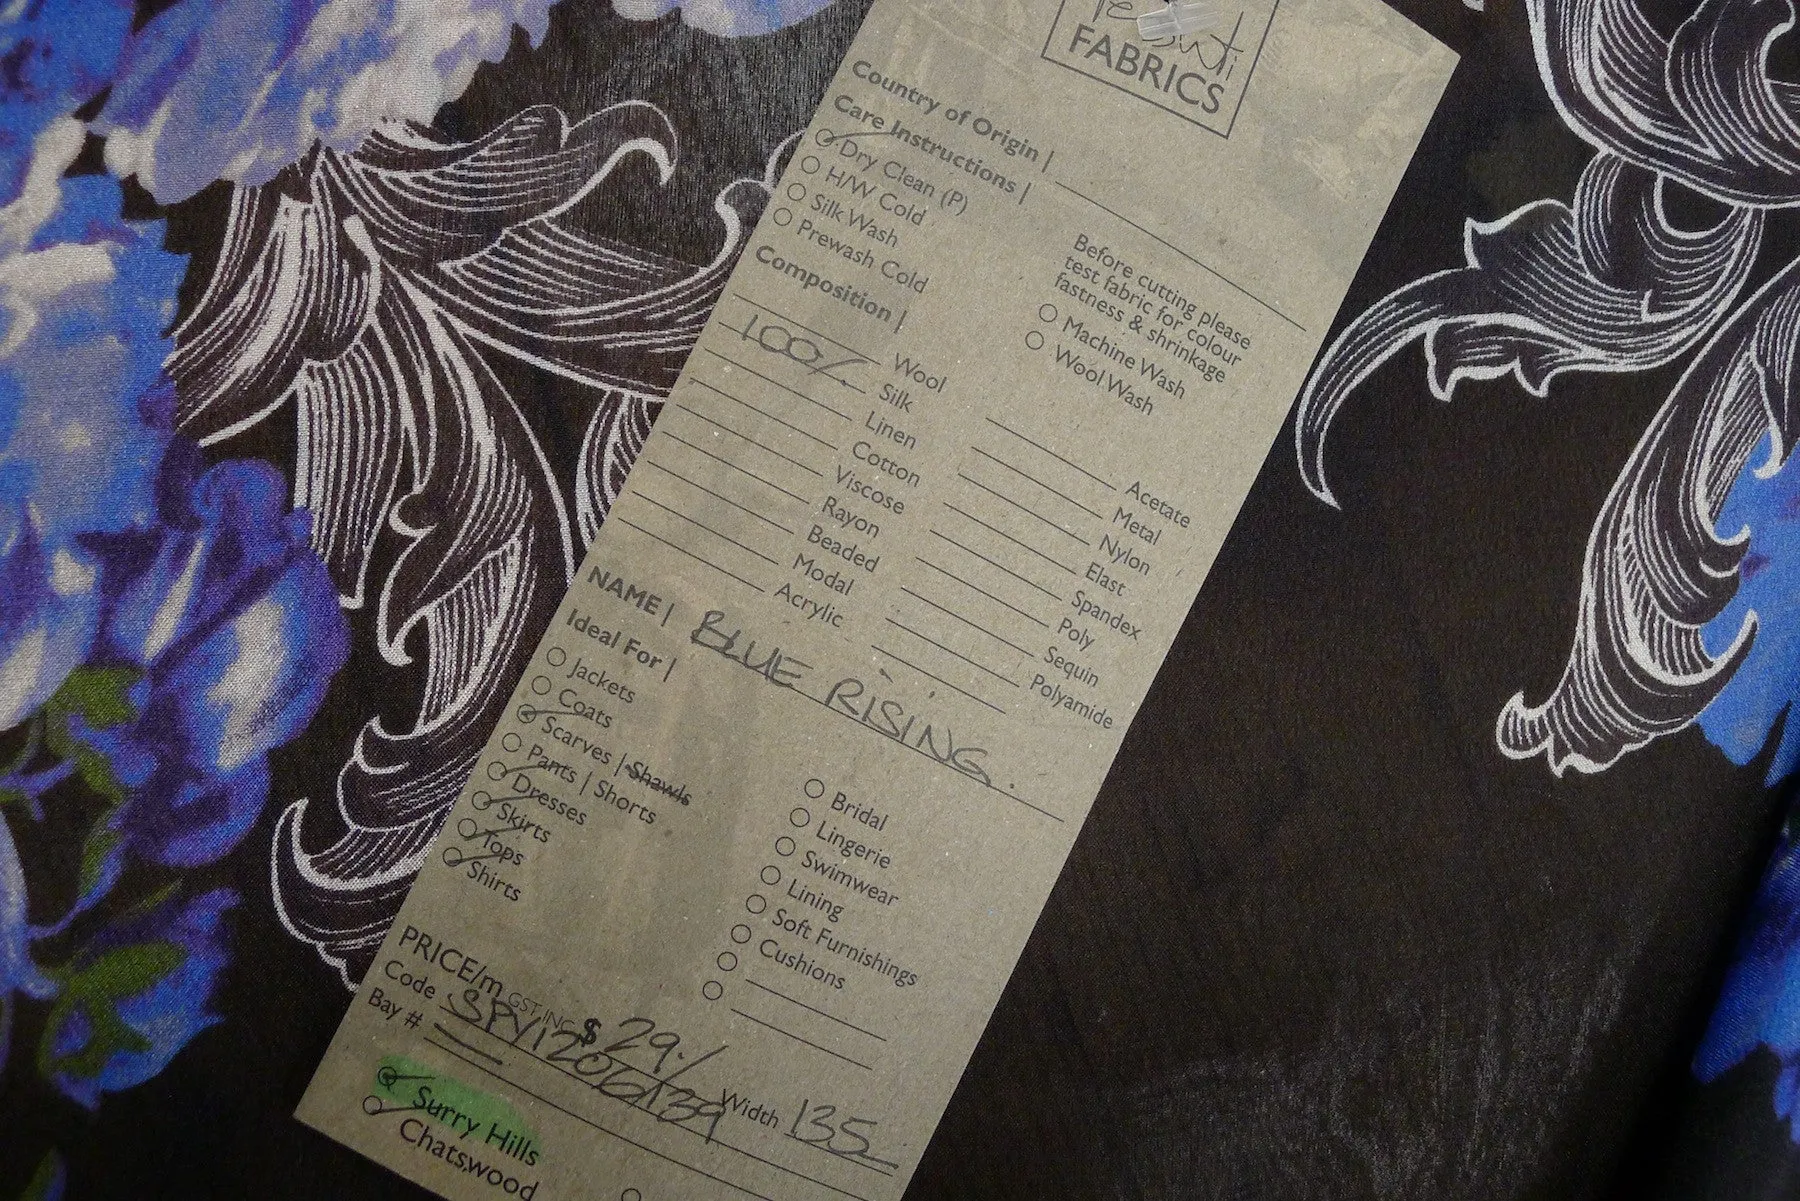 FABRICS
Country of Origin |
Care Instructions |
Dry Clean (P)
H/W Cold
Silk Wash
Prewash Cold
Before cutting please
test fabric for colour
fastness & shrinkage
Machine Wash
Wool Wash
Composition |
Wool
100% Silk
Linen
Cotton
Viscose
Rayon
Beaded
Modal
Acrylic
Acetate
Metal
Nylon
Elast
Spandex
Poly
Sequin
Polyamide
NAME | BLUE RISING.
Ideal For |
Jackets
Coats
Scarves | Shawls
Pants | Shorts
Dresses
Skirts
Tops
Shirts
Bridal
Lingerie
Swimwear
Lining
Soft Furnishings
Cushions
PRICE/m GST INC $ 29./
Code SPY1206139 Width 135
Bay #
Surry Hills
Chatswood